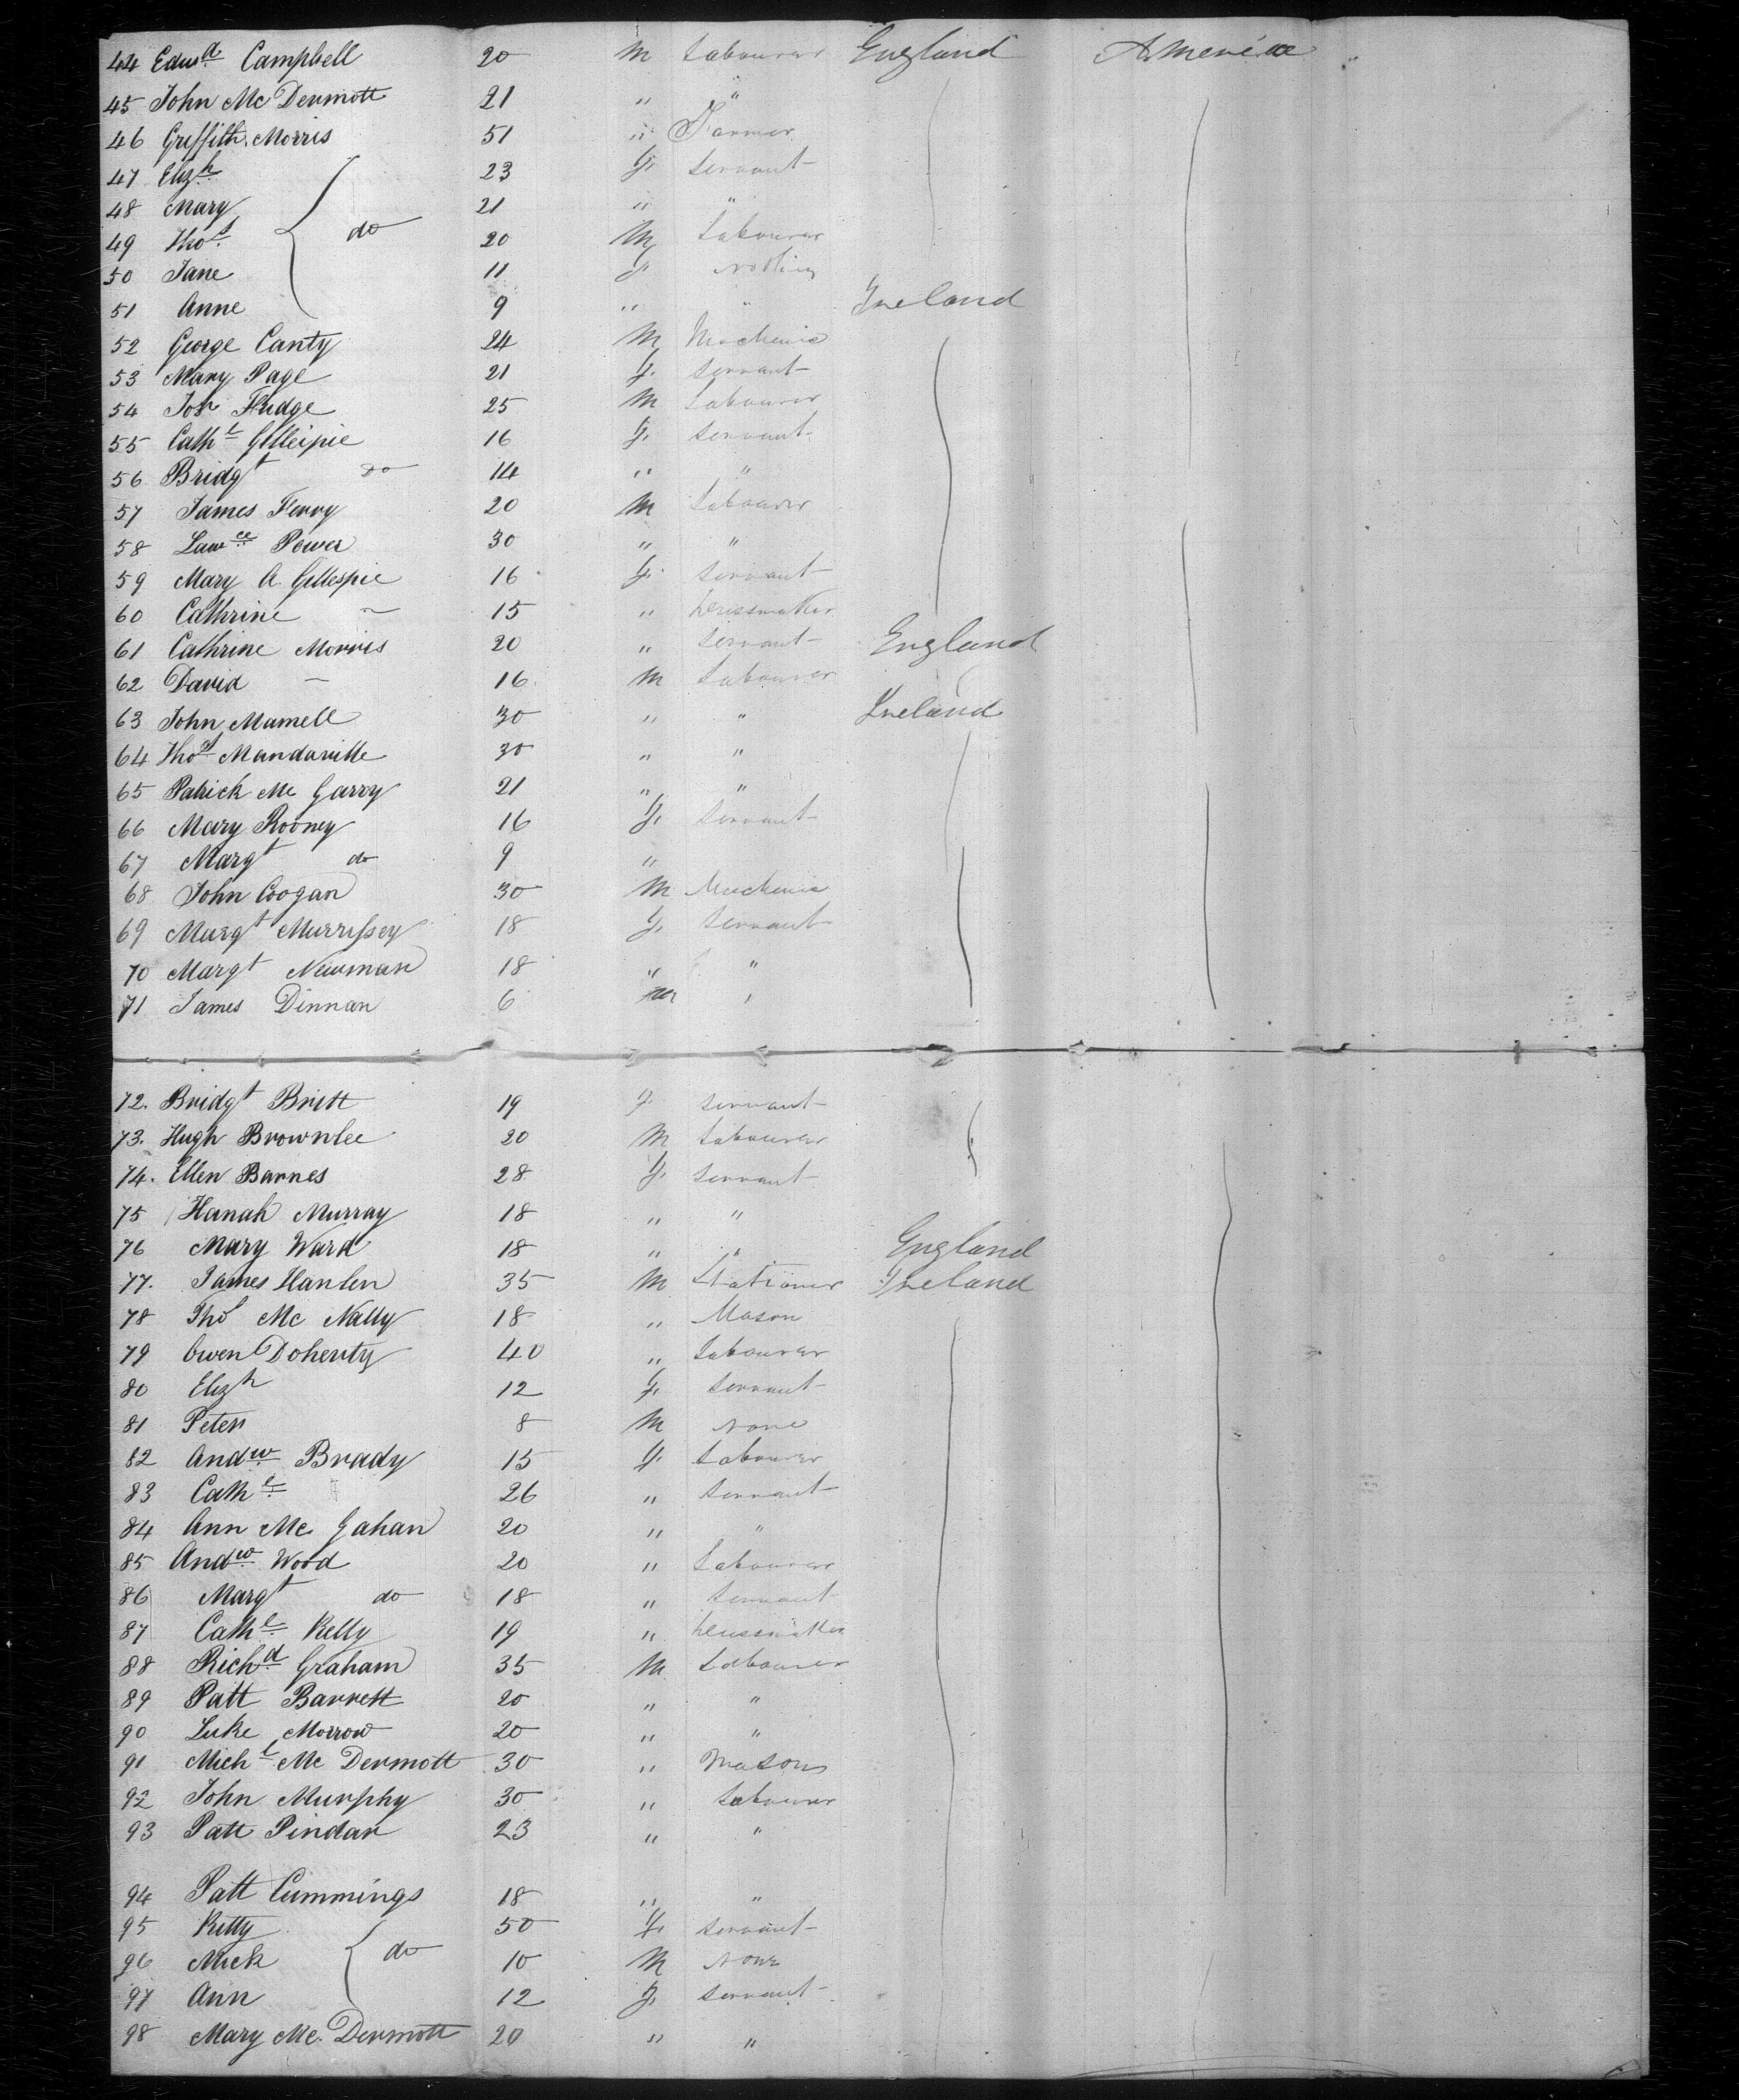 44 Edwd Campbell 20 M Labourer England America
45 John Mc Dermott 21 " "
46 Griffith Morris 51 " Farmer
47 Elizh 23 F. Servant
48 Mary 21 " "
49 Thos do 20 M Labourer
50 Jane 11 F. Nothing
51 Anne 9 " " Ireland
52 George Canty 24 M Mechanic
53 Mary Page 21 F. Servant
54 Jos Fludge 25 M Labourer
55 Cathe Gilleipie 16 F. Servant
56 Bridgt do 14 " "
57 James Ferry 20 M Labourer
58 Lawce Power 30 " "
59 Mary A. Gillespie 16 F. Servant
60 Cathrine ~ 15 " Dressmaker
61 Cathrine Morris 20 " Servant England
62 David – 16 M Labourer
63 John Mamell 30 " " Ireland
64 Thos Mandaville 30 " "
65 Patrick Mc Garry 21 " "
66 Mary Rooney 16 F. Servant
67 Margt do 9 "
68 John Coogan 30 M Mechanic
69 Margt Murrissey 18 F. Servant
70 Margt Newman 18 " "
71 James Dinnan 6 M "
72. Bridgt Britt 19 F. Servant
73. Hugh Brownlee 20 M Labourer
74. Ellen Barnes 28 F. Servant
75 Hanah Murray 18 " "
76 Mary Ward 18 " " England
77. James Hanlen 35 M Stationer Ireland
78 Thos Mc Nally 18 " Mason
79 Owen Doherty 40 " Labourer
80 Elizh 12 F. Servant
81 Peter 8 M None
82 Andw Brady 15 F. Labourer
83 Cathe 26 " Servant
84 Ann Mc Gahan 20 " "
85 Andw Wood 20 " Labourer
86 Margt do 18 " Servant
87 Cathe Kelly 19 " Dressmaker
88 Richd Graham 35 M Labourer
89 Patt Barrett 20 " "
90 Luke Morrow 20 " "
91 Michl Mc Dermott 30 " Mason
92 John Murphy 30 " Labourer
93 Patt Pindar 23 " "
94 Patt Cummings 18 " "
95 Kitty 50 F. Servant
96 Mick do 10 M None
97 Ann 12 F. Servant
98 Mary Mc. Dermott 20 " "